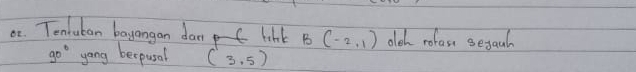 02. Tentukan bayangan dari titik B (-2,1) oleh rotasi sejauh
90° yang berpusat (3,5)